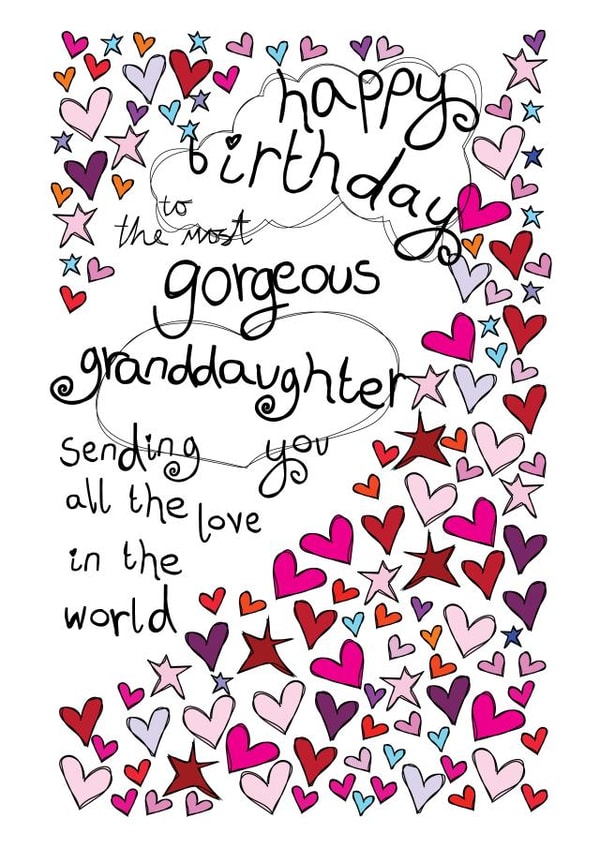 happy
birthday
to
the most
gorgeous
granddaughter
sending you
all the love
in the
world